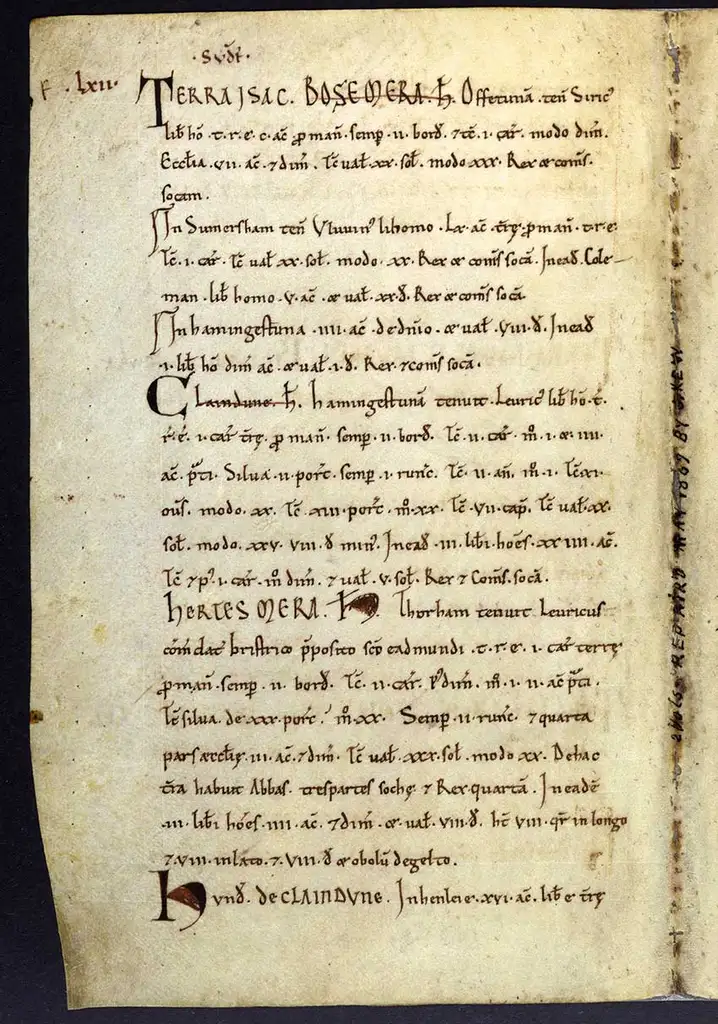 ·SVÐF·
F · LXII ·
TERRA ISAC. BOSEMERA. H̅. Offetunā .ten̄ Siric'
lib̄ hō .t.r.e. c. ac̄ p̱ man̄. semp̱ .ii. bord̄. ⁊ tc̄ .i. car̄. modo dim̄.
Eccl̄ia .vii. ac̄ ⁊ dim̄. Tc̄ ual̄ .xx. sol̄. modo .xxx. Rex & com̄s.
socam.
In Sumersham ten̄ Vluuin' lib homo .Lx. ac̄ .tr̄ę. p̱ man̄ .t.r.e.
Tc̄ .i. car̄. Tc̄ ual̄ xx. sol̄. modo .xx. Rex & com̄s socā. Inead̄. Cole-
man .lib̄ homo .v. ac̄ . & ual̄ .xx.đ. Rex & com̄s socā.
In hamingestuna .iiii. ac̄ . dedn̄io . & ual̄ .viii.đ. Inead̄
.i. lib̄ hō dim̄ ac̄ . & ual̄ .i.đ. Rex ⁊ com̄s socā.
Claindune. H̅. hamingestunā tenuit Leuric' lib̄ hō .t.
r.e. i. car̄ tr̄ę. p̱ man̄. semp̱ .ii. bord̄. Tc̄ .ii. car̄. m̊ .i. & .iiii.
ac̄. p̄ti. Silua .ii. porc̄. semp̱ .i. runc̄. Tc̄ .ii. an̄. m̊ .i. Tc̄ xi.
oūs. modo .xx. Tc̄ .xiii. porc̄. m̊ .xx. Tc̄ .vii. cap̄. Tc̄ ual̄ .xx.
sol̄. modo .xxv. viii. đ min'. Inead̄ .iii. lib̄i hōes .xxiiii. ac̄.
Tc̄ ⁊ p' .i. car̄. m̊ dim̄. ⁊ ual̄ .v. sol̄. Rex ⁊ Com̄s. socā.
HERTESMERA. H̅. Thorham tenuit Leuricus
cōmdat' bristrico p̄posito sc̄o eadmundi .t.r.e. i. car̄ terrę
p̱ man̄. semp̱ .ii. bord̄. Tc̄ .ii. car̄. p' dim̄. m̊ .i. ii. ac̄ p̄ti.
Tc̄ silua. de .xxx. porc̄. m̊ .xx. Semp̱ .ii. runc̄. ⁊ quarta
pars æccl̄ię .iii. ac̄. ⁊ dim̄. Tc̄ ual̄ .xxx. sol̄. modo xx. De hac
tr̄a habuit Abbas. tres partes sochę ⁊ Rex quartā. In eadē
.iii. lib̄i hōes .iiii. ac̄. ⁊ dim̄. & ual̄ .viii.đ. ht̄ viii. qr̄ in longo
⁊ .viii. in lato. ⁊ .viii. đ & obolū de gelto.
Hund̄. de CLAINDVNE. In henleie .xvi. ac̄. lib̄e tr̄ę
2 HOLS REPAIRD MAY 1869 BY SKEW